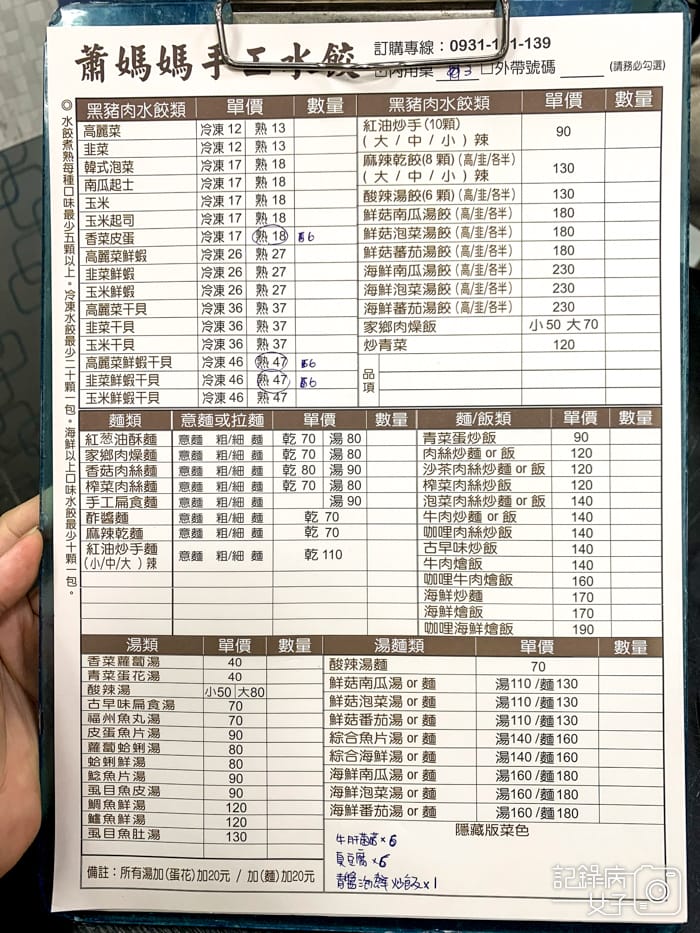 蕭媽媽手工水餃
訂購專線：0931-1 1-139
內用桌 外帶號碼 (請務必勾選)
◎水餃煮熟每種口味最少五顆以上。冷凍水餃最少二十顆一包。海鮮以上口味水餃最少十顆一包。
黑豬肉水餃類 單價 數量
高麗菜 冷凍 12 熟 13
韭菜 冷凍 12 熟 13
韓式泡菜 冷凍 17 熟 18
南瓜起士 冷凍 17 熟 18
玉米 冷凍 17 熟 18
玉米起司 冷凍 17 熟 18
香菜皮蛋 冷凍 17 熟 18 6
高麗菜鮮蝦 冷凍 26 熟 27
韭菜鮮蝦 冷凍 26 熟 27
玉米鮮蝦 冷凍 26 熟 27
高麗菜干貝 冷凍 36 熟 37
韭菜干貝 冷凍 36 熟 37
玉米干貝 冷凍 36 熟 37
高麗菜鮮蝦干貝 冷凍 46 熟 47 6
韭菜鮮蝦干貝 冷凍 46 熟 47 6
玉米鮮蝦干貝 冷凍 46 熟 47
黑豬肉水餃類 單價 數量
紅油炒手 (10顆) 90
( 大 / 中 / 小 ) 辣
麻辣乾餃(8 顆) (高/韭/各半) 130
( 大 / 中 / 小 ) 辣
酸辣湯餃(6 顆) (高/韭/各半) 130
鮮菇南瓜湯餃 (高/韭/各半) 180
鮮菇泡菜湯餃 (高/韭/各半) 180
鮮菇蕃茄湯餃 (高/韭/各半) 180
海鮮南瓜湯餃 (高/韭/各半) 230
海鮮泡菜湯餃 (高/韭/各半) 230
海鮮蕃茄湯餃 (高/韭/各半) 230
家鄉肉燥飯 小 50 大 70
炒青菜 120
品項
麵類 意麵或拉麵 單價 數量
紅葱油酥麵 意麵 粗/細 麵 乾 70 湯 80
家鄉肉燥麵 意麵 粗/細 麵 乾 70 湯 80
香菇肉絲麵 意麵 粗/細 麵 乾 80 湯 90
榨菜肉絲麵 意麵 粗/細 麵 乾 70 湯 80
手工扁食麵 意麵 粗/細 麵 湯 90
酢醬麵 意麵 粗/細 麵 乾 70
麻辣乾麵 意麵 粗/細 麵 乾 70
紅油炒手麵 意麵 粗/細 麵 乾 110
(小/中/大 ) 辣
麵/飯類 單價 數量
青菜蛋炒飯 90
肉絲炒麵 or 飯 120
沙茶肉絲炒麵 or 飯 120
榨菜肉絲炒飯 120
泡菜肉絲炒麵 or 飯 140
牛肉炒麵 or 飯 140
咖哩肉絲炒飯 140
古早味炒飯 140
牛肉燴飯 140
咖哩牛肉燴飯 160
海鮮炒麵 170
海鮮燴飯 170
咖哩海鮮燴飯 190
湯類 單價 數量
香菜蘿蔔湯 40
青菜蛋花湯 40
酸辣湯 小50 大80
古早味扁食湯 70
福州魚丸湯 70
皮蛋魚片湯 90
蘿蔔蛤蜊湯 80
蛤蜊鮮湯 80
鯰魚片湯 90
虱目魚皮湯 90
鯛魚鮮湯 120
鱸魚鮮湯 120
虱目魚肚湯 130
備註：所有湯加(蛋花)加20元 / 加(麵)加20元
湯麵類 單價 數量
酸辣湯麵 70
鮮菇南瓜湯 or 麵 湯110 /麵130
鮮菇泡菜湯 or 麵 湯110 /麵130
鮮菇番茄湯 or 麵 湯110 /麵130
綜合魚片湯 or 麵 湯140 /麵160
綜合海鮮湯 or 麵 湯140 /麵160
海鮮南瓜湯 or 麵 湯160 /麵180
海鮮泡菜湯 or 麵 湯160 /麵180
海鮮番茄湯 or 麵 湯160 /麵180
隱藏版菜色
牛肝菌菇×6
臭豆腐×6
青醬海鮮炒飯×1
記錄病女子